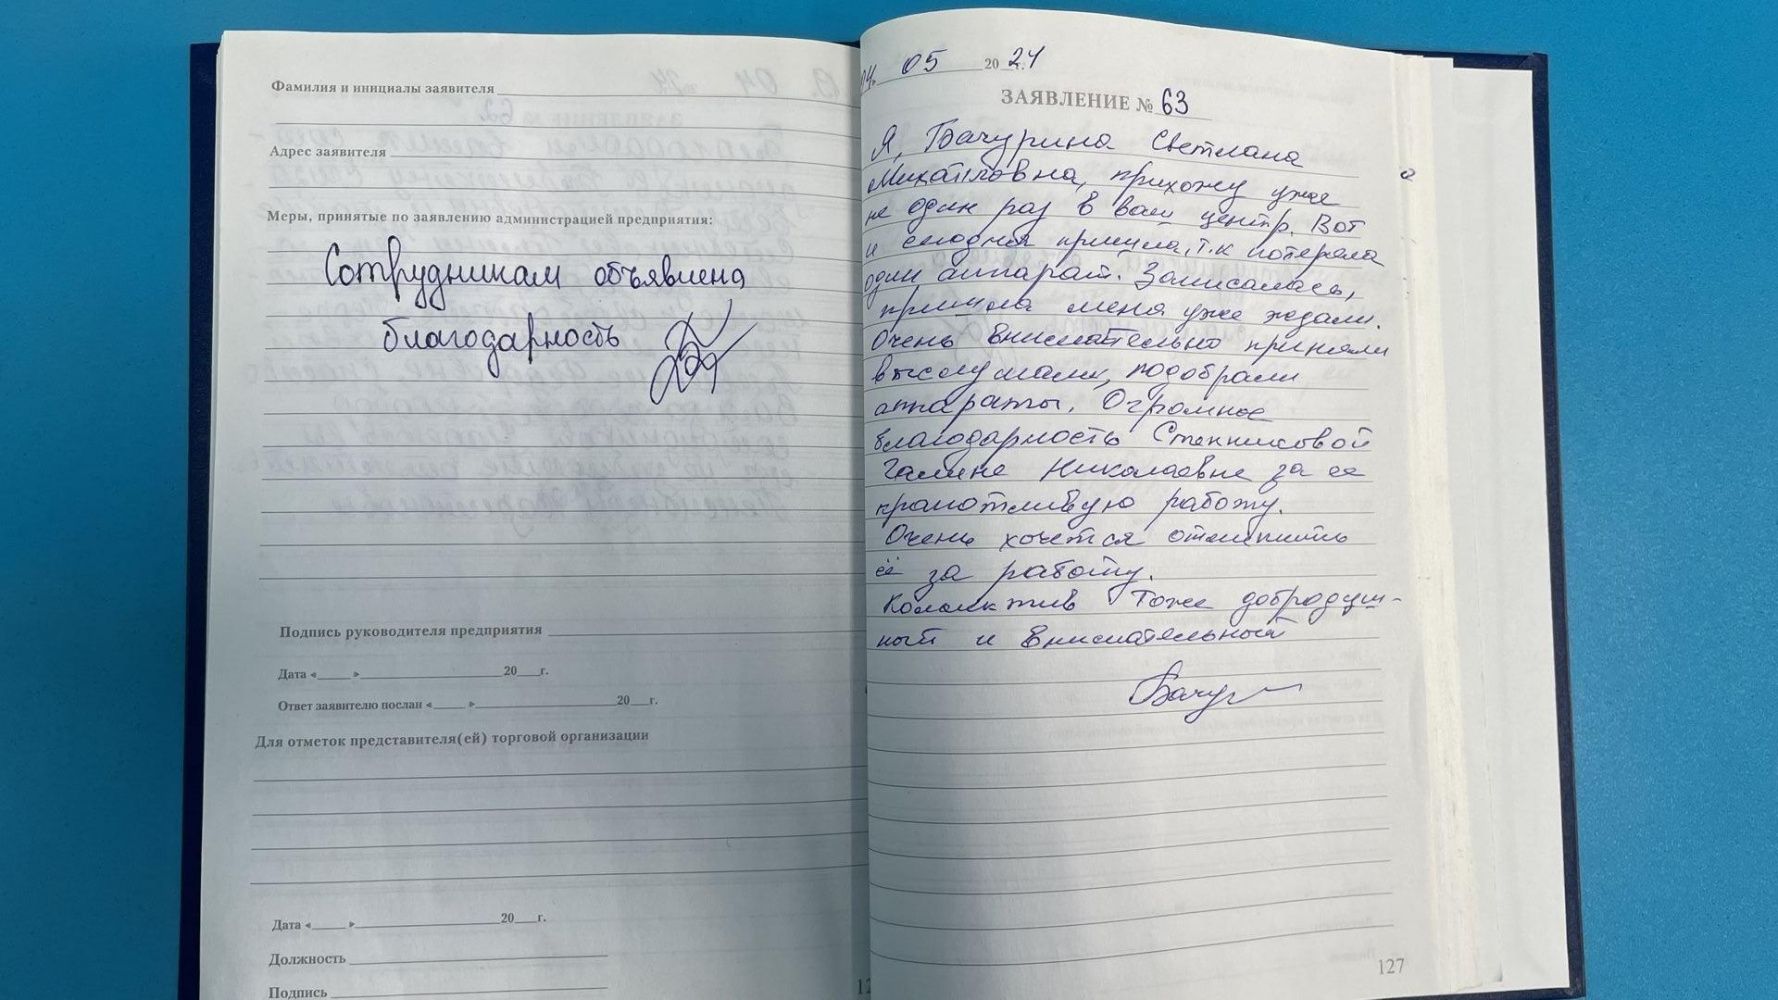 Фамилия и инициалы заявителя
Адрес заявителя
Меры, принятые по заявлению администрацией предприятия:
Сотрудникам объявлена
благодарность
Подпись руководителя предприятия
Дата «___» ___ 20__г.
Ответ заявителю послан «___» ___ 20__г.
Для отметок представителя(ей) торговой организации
Дата «___» ___ 20__г.
Должность
Подпись
04. 05 2024 г.
ЗАЯВЛЕНИЕ № 63
Я, Бачурина Светлана
Михайловна, прихожу уже
не один раз в ваш центр. Вот
и сегодня пришла, т.к потеряла
один аппарат. Записалась,
пришла меня уже ждали.
Очень внимательно приняли
выслушали, подобрали
аппараты. Огромное
благодарность
Галине Николаевне за ее
кропотливую работу.
Очень хочется отметить
её за работу.
Коллектив тоже добродуш-
ный и внимательный
Бачур
127